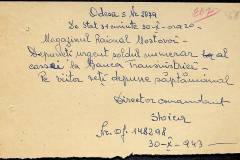 Odesa s. Nr. 3079
667
De stat 31 minute 30-X-0920 -
Magazinul Raional Mostovoi -
Depuneți urgent soldul numerar al
cassei la Banca Transnistriei -
Pe viitor veți depune săptămânal
Director comandant
Stoica
Nr. of. 148298
30-X-943 -